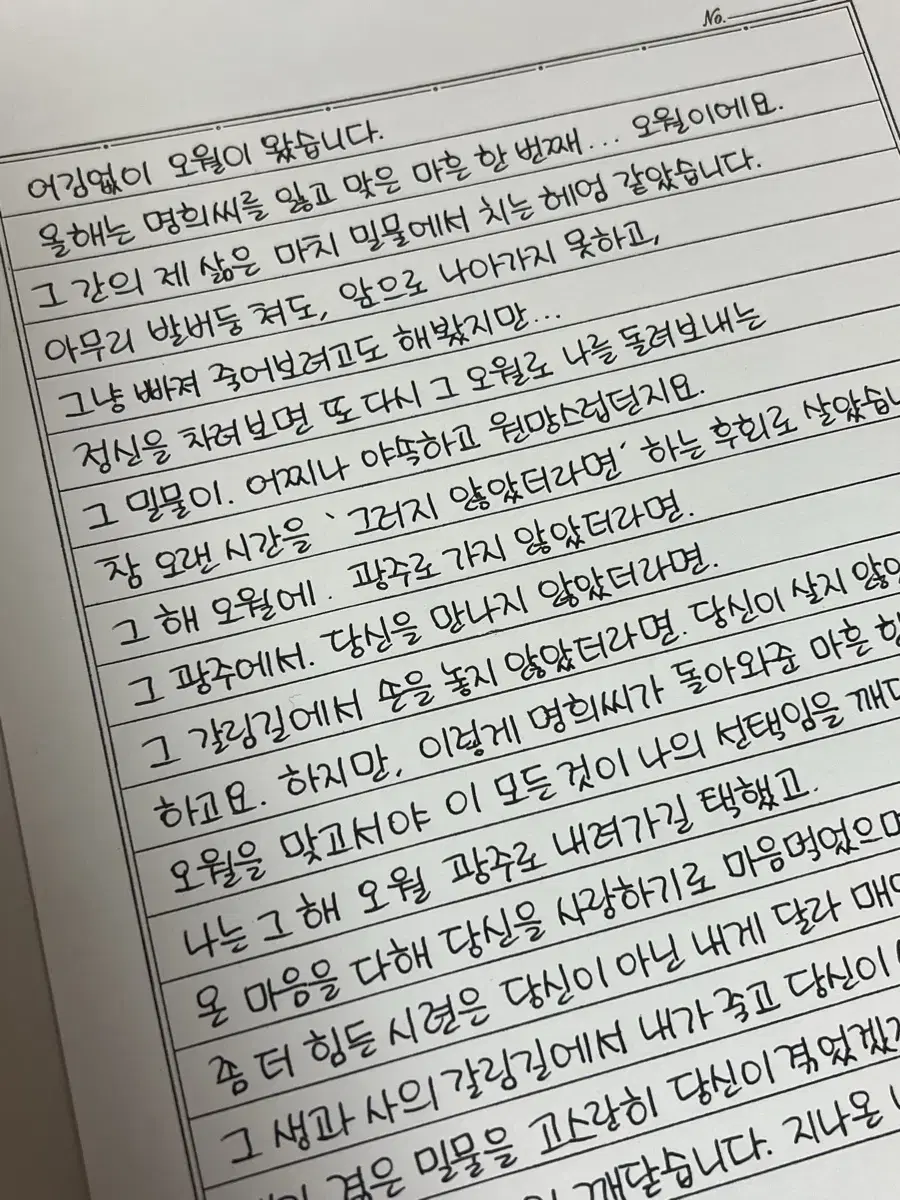 No.
어김없이 오월이 왔습니다.
올해는 명희씨를 잃고 맞은 마흔 한 번째... 오월이에요.
그 간의 제 삶은 마치 밀물에서 치는 헤엄 같았습니다.
아무리 발버둥 쳐도, 앞으로 나아가지 못하고,
그냥 빠져 죽어보려고도 해봤지만...
정신을 차려보면 또 다시 그 오월로 나를 돌려보내는
그 밀물이. 어찌나 야속하고 원망스럽던지요.
참 오랜 시간을 '그러지 않았더라면' 하는 후회로 살았습니
그 해 오월에. 광주로 가지 않았더라면.
그 광주에서. 당신을 만나지 않았더라면.
그 갈림길에서 손을 놓지 않았더라면. 당신이 살지 않았
하고요. 하지만, 이렇게 명희씨가 돌아와준 마흔 한
오월을 맞고서야 이 모든 것이 나의 선택임을 깨
나는 그 해 오월 광주로 내려가길 택했고.
온 마음을 다해 당신을 사랑하기로 마음먹었으며
좀 더 힘든 시련은 당신이 아닌 내게 달라 매
그 생과 사의 갈림길에서 내가 죽고 당신이
겪은 밀물을 고스란히 당신이 겪었겠
깨닫습니다. 지나온